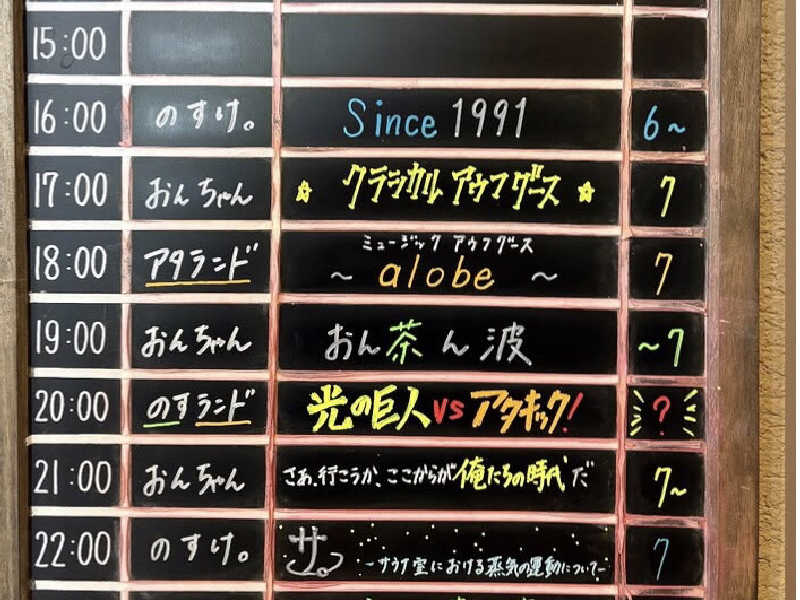 15:00
16:00 のすけ。 Since 1991 6~
17:00 おんちゃん ☆ クラシカル アウフグース ☆ 7
ミュージック アウフグース
18:00 アタランド ~ alobe ~ 7
19:00 おんちゃん おん茶ん波 ~7
20:00 のすランド 光の巨人 vs アタキック! ?
21:00 おんちゃん さあ、行こうか、ここからが俺たちの時代だ 7~
22:00 のすけ。 サ。 -サウナ室における蒸気の運動について- 7